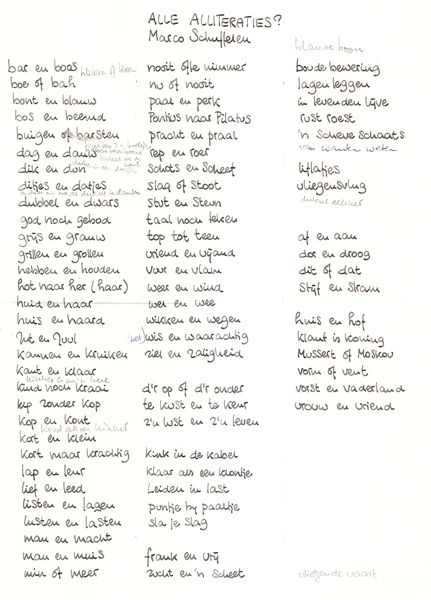 ALLE ALLITERATIES?
Marco Schuffelen
bar en boos
boe of bah
bont en blauw
bos en beemd
buigen of barsten
dag en dauw
dik en dun
ditjes en datjes
dubbel en dwars
god noch gebod
grijs en grauw
grillen en grollen
hebben en houden
hot haar her (haar)
huid en haar
huis en haard
Jut en Juul
kannen en kruiken
kant en klaar
kind noch kraai
kip zonder kop
kop en kont
kort en klein
kort maar krachtig
lap en leur
lief en leed
listen en lagen
lusten en lasten
man en macht
man en muis
min of meer
nooit ofte nimmer
nu of nooit
paal en perk
Pontius naar Pilatus
pracht en praal
rep en roer
Schots en Scheef
slag of stoot
Stut en Steun
taal noch teken
top tot teen
vriend en vijand
vuur en vlam
weer en wind
wel en wee
wikken en wegen
wis en waarachtig
ziel en zaligheid
d'r op of d'r onder
te kust en te keur
z'n lust en z'n leven
kink in de kabel
klaar als een klontje
Leiden in last
puntje bij paaltje
sla je slag
frank en vrij
zucht en 'n scheet
blauwe boon
boude bewering
lagen leggen
in levenden lijve
rust roest
'n Scheve Schaats
van wanten weten
liflafjes
vliegensvlug
af en aan
dor en droog
dit of dat
Stijf en Stram
huis en hof
klant is koning
Mussert of Moskou
vorm of vent
vorst en vaderland
vrouw en vriend
vliegende vaart